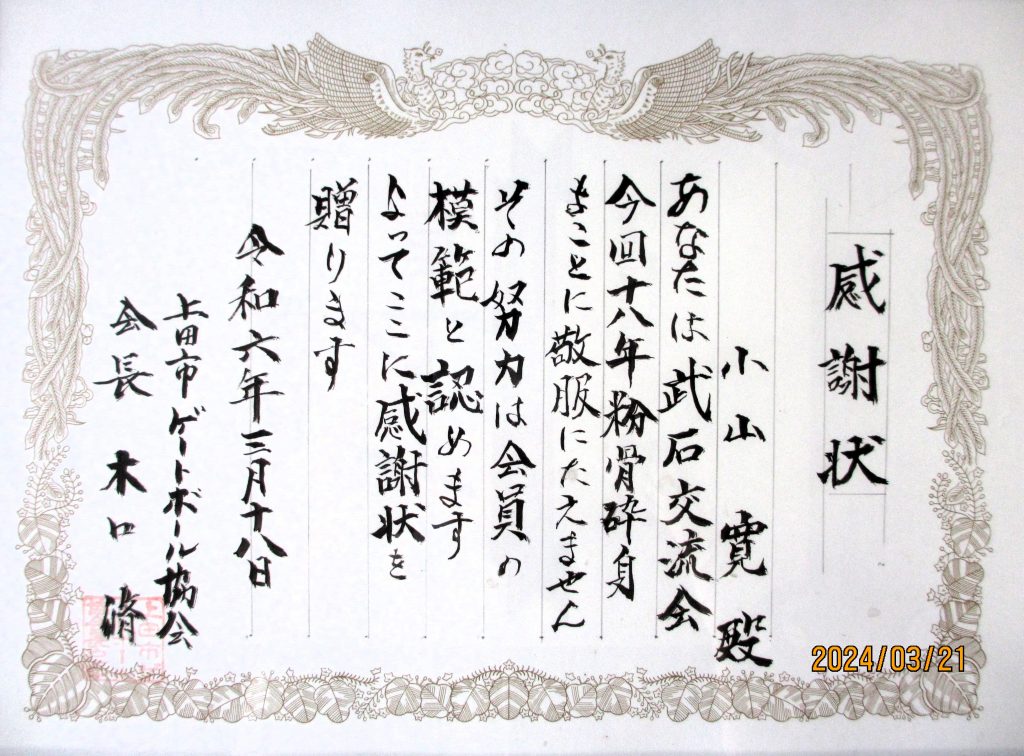 感謝状
小山 寛 殿
あなたは武石交流会
今回十八年粉骨砕身
まことに敬服にたえません
その努力は会員の
模範と認めます
よってここに感謝状を
贈ります
令和六年三月十八日
上田市ゲートボール協会
会長 木口 脩
2024/03/21